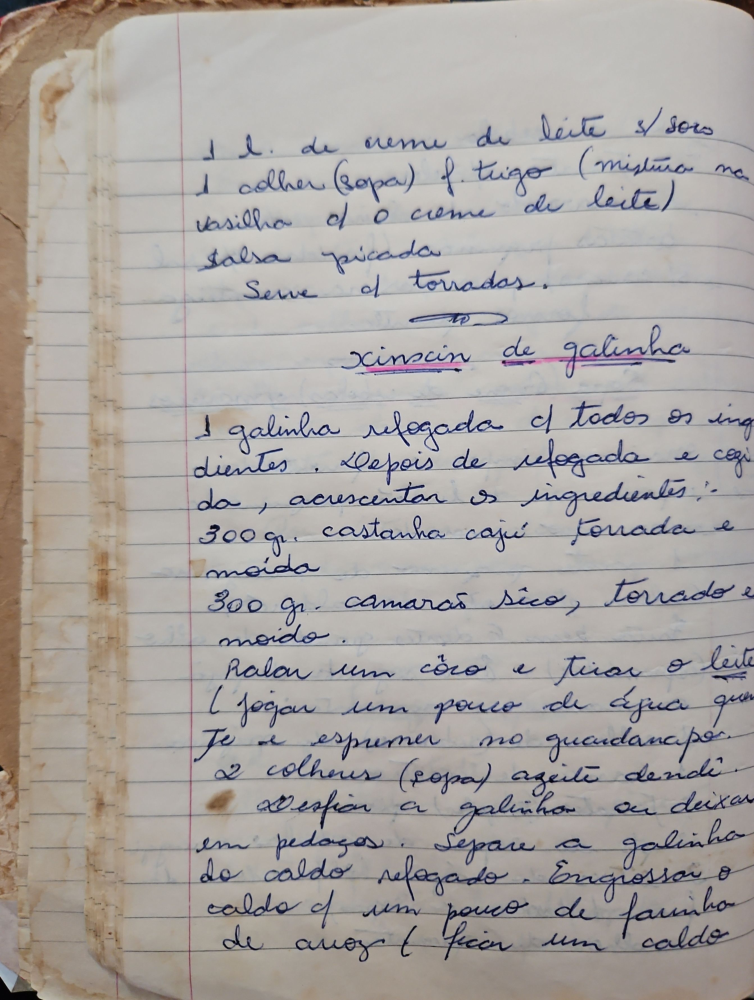 1 l. de creme de leite s/ soro
1 colher (sopa) f. trigo (mistura na
vasilha c/ o creme de leite)
salsa picada
Serve c/ torradas.
xinxin de galinha
1 galinha refogada c/ todos os ing
dientes. Depois de refogada e cozi
da, acrescentar os ingredientes:-
300 gr. castanha cajú torrada e
moída
300 gr. camarão sêco, torrado e
moido.
Ralar um côco e tirar o leite
( jogar um pouco de água quen
te e espremer no guardanapo.
2 colheres (sopa) azeite dendê.
Desfiar a galinha ou deixar
em pedaços. Separe a galinha
do caldo refogado. Engrossar o
caldo c/ um pouco de farinha
de arroz ( ficar um caldo